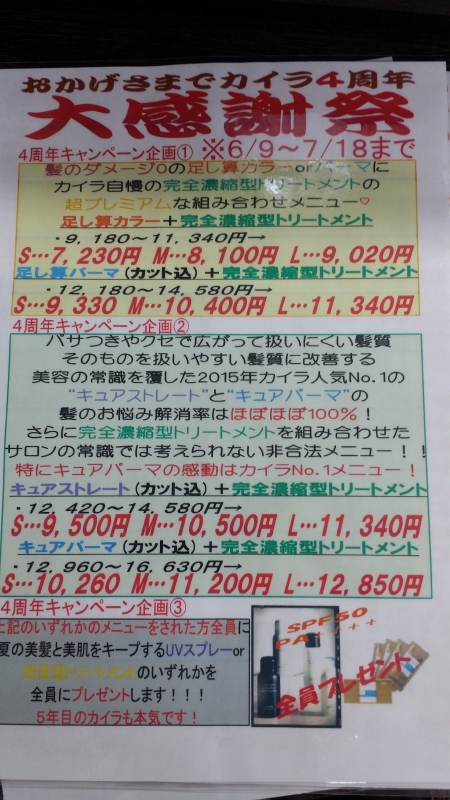 おかげさまでカイラ4周年
大感謝祭
4周年キャンペーン企画① ※6/9～7/18まで
髪のダメージ0の足し算カラーorパーマに
カイラ自慢の完全濃縮型トリートメントの
超プレミアムな組み合わせメニュー♡
足し算カラー＋完全濃縮型トリートメント
・9,180～11,340円→
S…7,230円 M…8,100円 L…9,020円
足し算パーマ(カット込)＋完全濃縮型トリートメント
・12,180～14,580円→
S…9,330 M…10,400円 L…11,340円
4周年キャンペーン企画②
パサつきやクセで広がって扱いにくい髪質
そのものを扱いやすい髪質に改善する
美容の常識を覆した2015年カイラ人気No.1の
“キュアストレート”と“キュアパーマ”の
髪のお悩み解消率はほぼほぼ100％！
さらに完全濃縮型トリートメントを組み合わせた
サロンの常識では考えられない非合法メニュー！！
特にキュアパーマの感動はカイラNo.1メニュー！
キュアストレート(カット込)＋完全濃縮型トリートメント
・12,420～14,580円→
S…9,500円 M…10,500円 L…11,340円
キュアパーマ(カット込)＋完全濃縮型トリートメント
・12,960～16,630円→
S…10,260 M…11,200円 L…12,850円
4周年キャンペーン企画③
上記のいずれかのメニューをされた方全員に
夏の美髪と美肌をキープするUVスプレーor
トリートメントのいずれかを
全員にプレゼントします！！！
5年目のカイラも本気です！
SPF50
PA++++
全員プレゼント